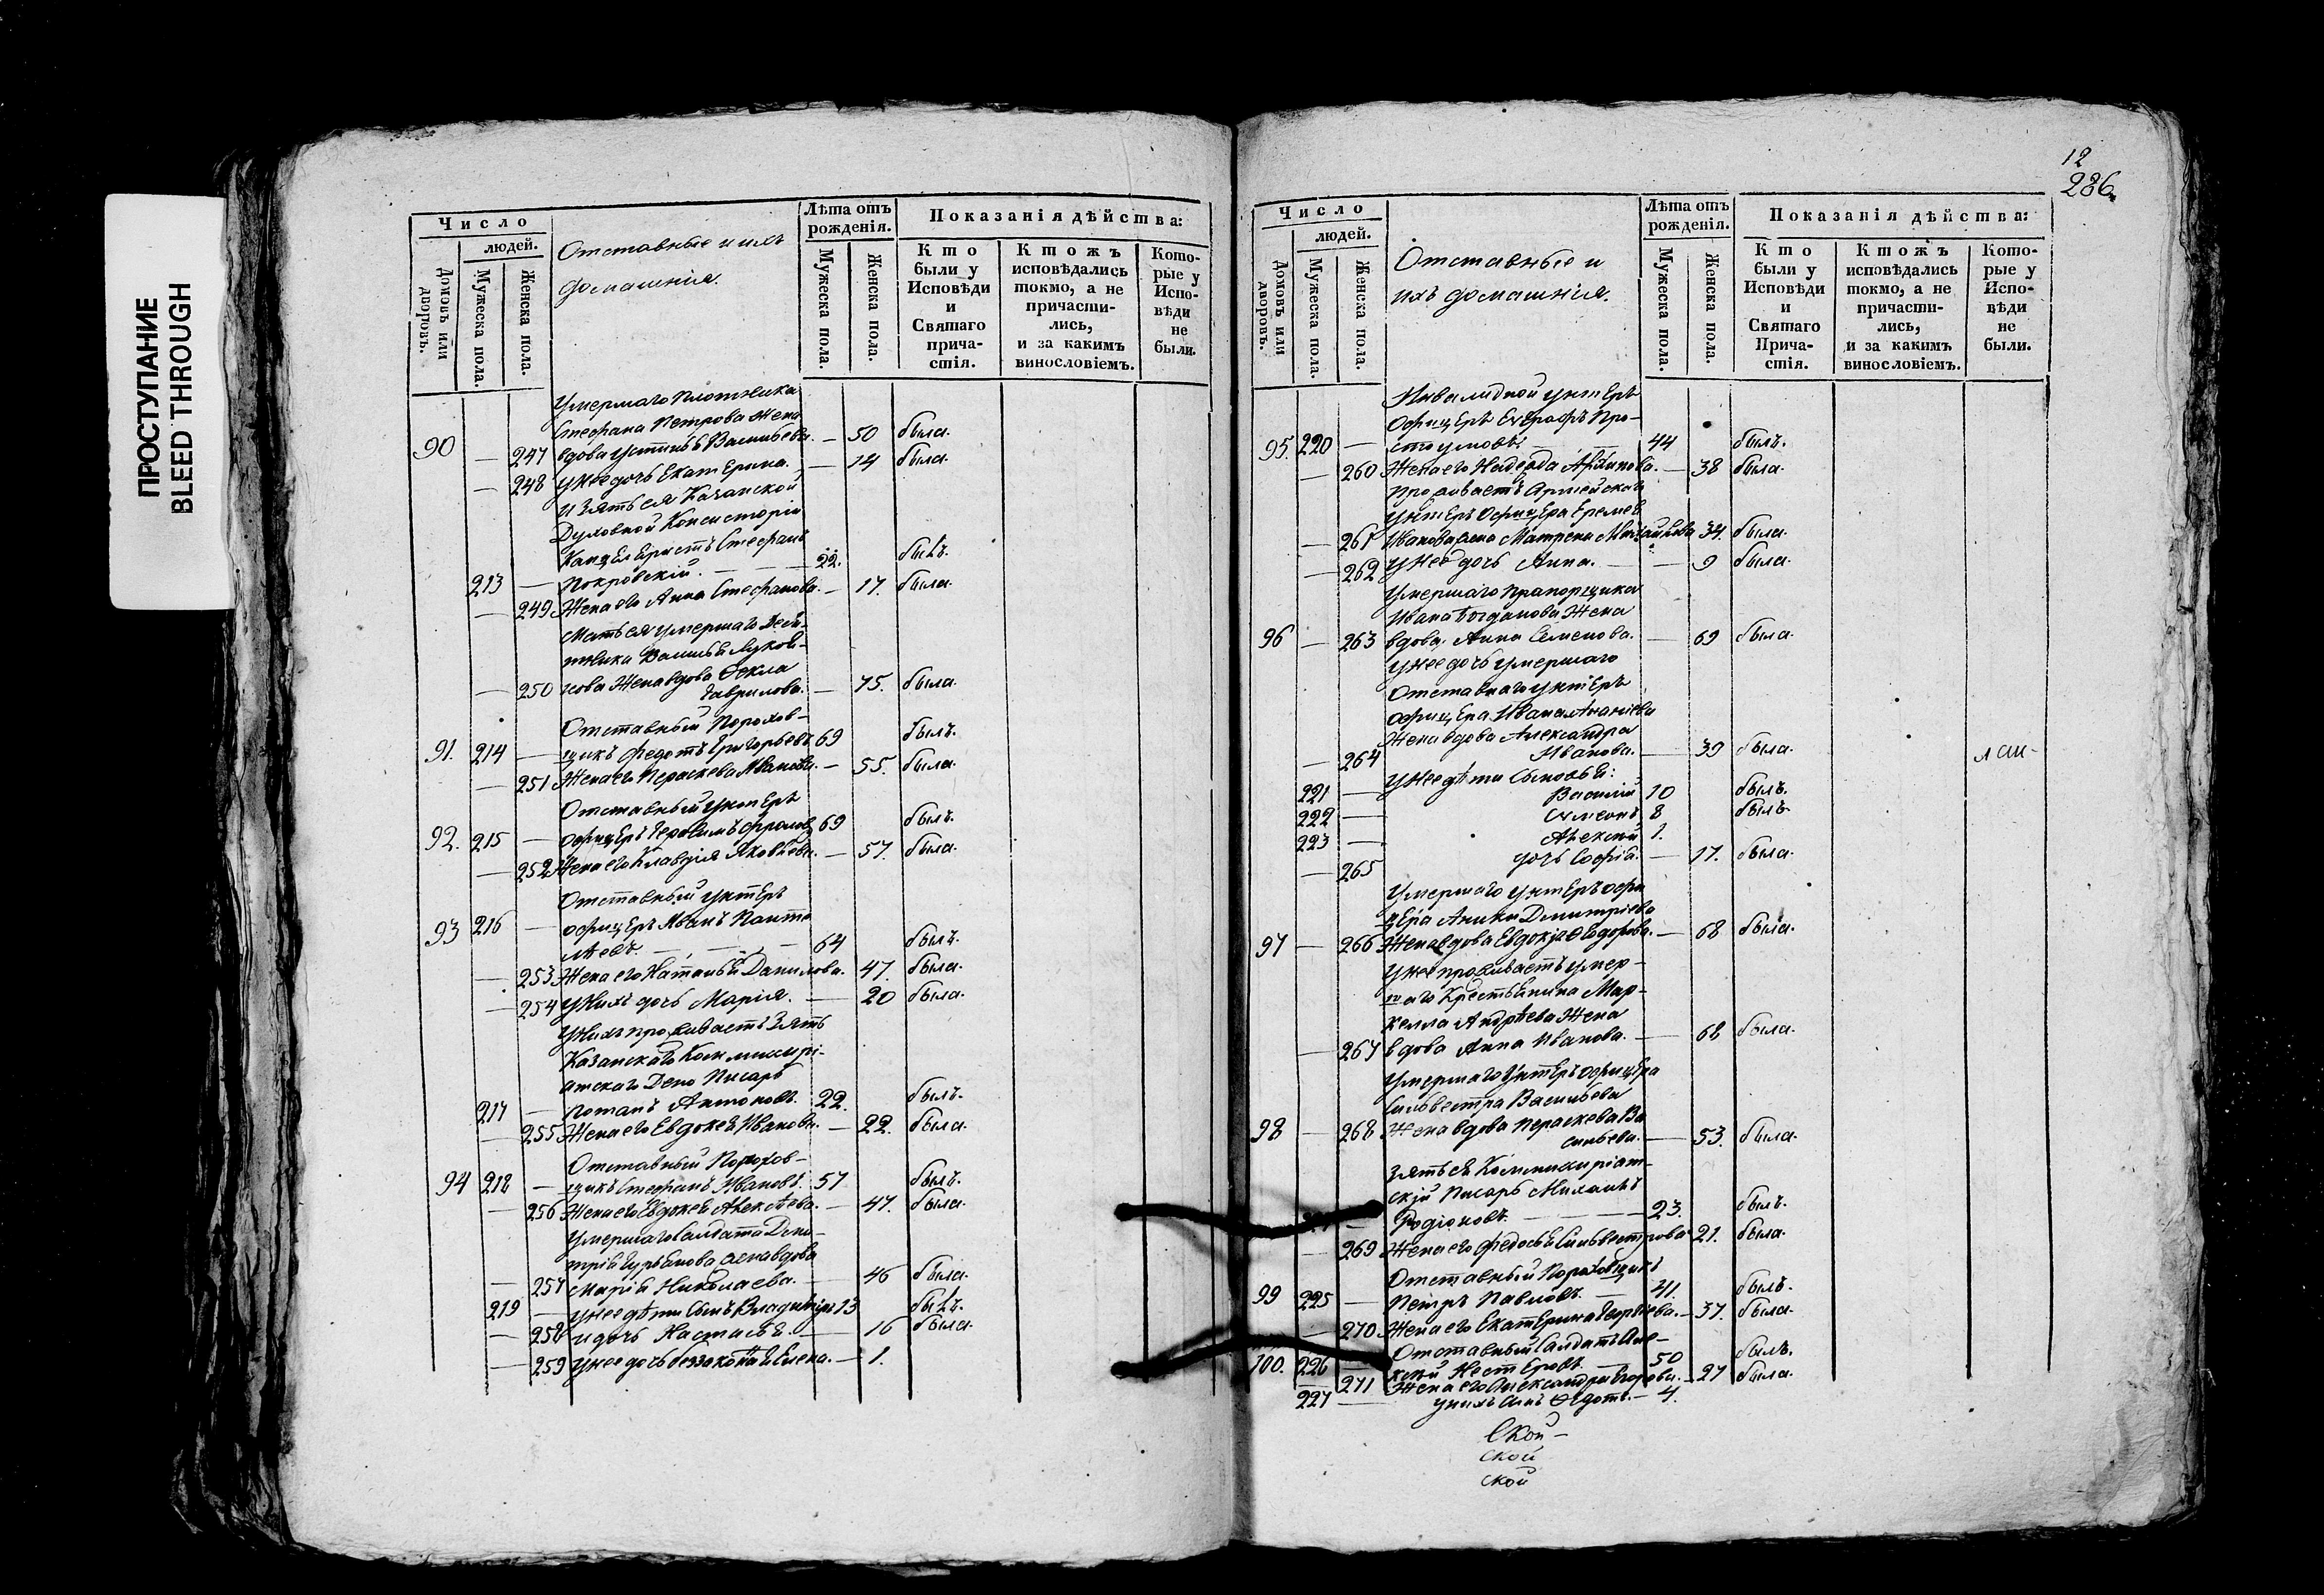 ПРОСТУПАНИЕ
BLEED THROUGH
Число
людей.
Домовъ или дворовъ.
Мужеска пола.
Женска пола.
Отставные и ихъ
домашнія.
Лѣта отъ
рожденія.
Мужеска пола.
Женска пола.
Показанія дѣйства:
Кто
были у
Исповѣди
и
Святаго
прича-
стія.
Ктожъ
исповѣдались
токмо, а не
причасти-
лись,
и за какимъ
винословіемъ.
Кото-
рые у
Испо-
вѣди
не
были.
Умершаго Плотника
Стефана Петрова Жена
90 — 247 вдова Устинья Васильева. — 50 была.
— 248 у нее дочь Екатерина. — 14 была.
и зять ея Казанской
Духовной Консисторіи
Канцеляристъ Стефанъ
213 — Покровскій. — — 22. былъ.
— 249 Жена его Анна Стефанова. — 17. была.
Мать ея умершаго
Василья
— 250 Жена вдова Фекла
Гаврилова. — 75. была.
Отставный Порохов-
91. 214 — щикъ Федотъ Григорьевъ 69 былъ.
— 251 Жена его Параскева Иванова. — 55. была.
Отставный унтеръ
92. 215 — офицеръ Фролов 69 былъ.
— 252 Жена его Клавдія Яковлева. — 57. была.
Отставный унтеръ
93 216 — офицеръ Иванъ Панте
лѣевъ. — — — 64 былъ.
— 253 Жена его Наталья Данилова. 47. была.
— 254 у нихъ дочь Марія. — 20 была.
у нихъ проживаетъ зять
Казанскаго Коммисарі-
атскаго Депо Писарь
217 — Потапъ Антоновъ. 22. былъ.
— 255 Жена его Евдокея Иванова. — 22. была.
Отставный Порохов-
94 218 — щикъ Стефанъ Ивановъ. 57 былъ.
— 256 Жена его Евдокея Алексѣева. — 47. была.
Умершаго Салдата Дми-
трія Гурьянова жена вдова
— 257 Марія Николаева. — 46 была.
219 — у нее дѣти сынъ Владимиръ 13 былъ.
— 258 и дочь Настасья. — 16 была.
— 259 у нее дочь беззаконная Елена. — 1.
12
286.
Число
людей.
Домовъ или дворовъ.
Мужеска пола.
Женска пола.
Отставные и
ихъ домашнія.
Лѣта отъ
рожденія.
Мужеска пола.
Женска пола.
Показанія дѣйства:
Кто
были у
Исповѣди
и
Святаго
Прича-
стія.
Ктожъ
исповѣдались
токмо, а не
причасти-
лись,
и за какимъ
винословіемъ.
Кото-
рые у
Испо-
вѣди
не
были.
Инвалидной унтеръ
офицеръ Евграфъ Про-
95. 220 — стумовъ. — — 44 былъ.
— 260 Жена его Надежда Архипова. — 38 была.
проживаетъ Армейскаго
унтеръ офицера Еремея
— 261 Иванова жена Матрена Михайлова 34. была.
— 262 у нее дочь Анна. — — 9 была.
Умершаго Прапорщика
Ивана Богданова Жена
96 — 263 вдова Анна Семенова. — 69 была.
у нее дочь умершаго
Отставнаго унтеръ
офицера Ивана Ананіева
Жена вдова Александра
— 264 Иванова. — 39 была.
у нее дѣти сыновья:
221 — Василій 10 былъ.
222 — Симеонъ 8 былъ
223 — Алексѣй 1.
— 265 дочь Софія. — 17. была.
Умершаго унтеръ офи
цера Аники Димитріева
97 — 266 Жена вдова Евдокія Федорова. — 68 была.
у нее проживаетъ умер-
шаго Крестьянина Мар-
келла Андреева Жена
— 267 вдова Анна Иванова. — 68 была.
Умершаго Унтеръ офицера
Сильвестра Васильева
98 — 268 Жена вдова Параскева Ва
сильева. — 53. была.
зять ея Коммисаріат-
скій Писарь
— Родіоновъ. — — 23. былъ.
— 269 Жена его Федосья Сильвестрова 21. была.
Отставный Пороховщикъ
99 225 — Петръ Павловъ. — 41. былъ.
— 270 Жена его Екатерина Георгіева. — 37. была.
Отставный Салдатъ Але-
100. 226 — ксѣй Нестеровъ. — 50 былъ.
271 Жена его Александра Егорова. — 27 была.
227 — у нихъ сынъ Федотъ. — 4.
Ской-
ской
ской